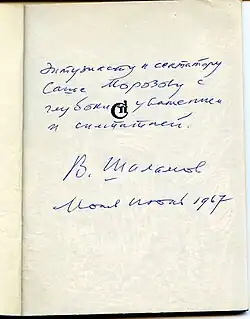 Энтузиасту и сектатору
Саше Морозову с
глубоким уважением
и симпатией.
В. Шаламов
Москва июнь 1967